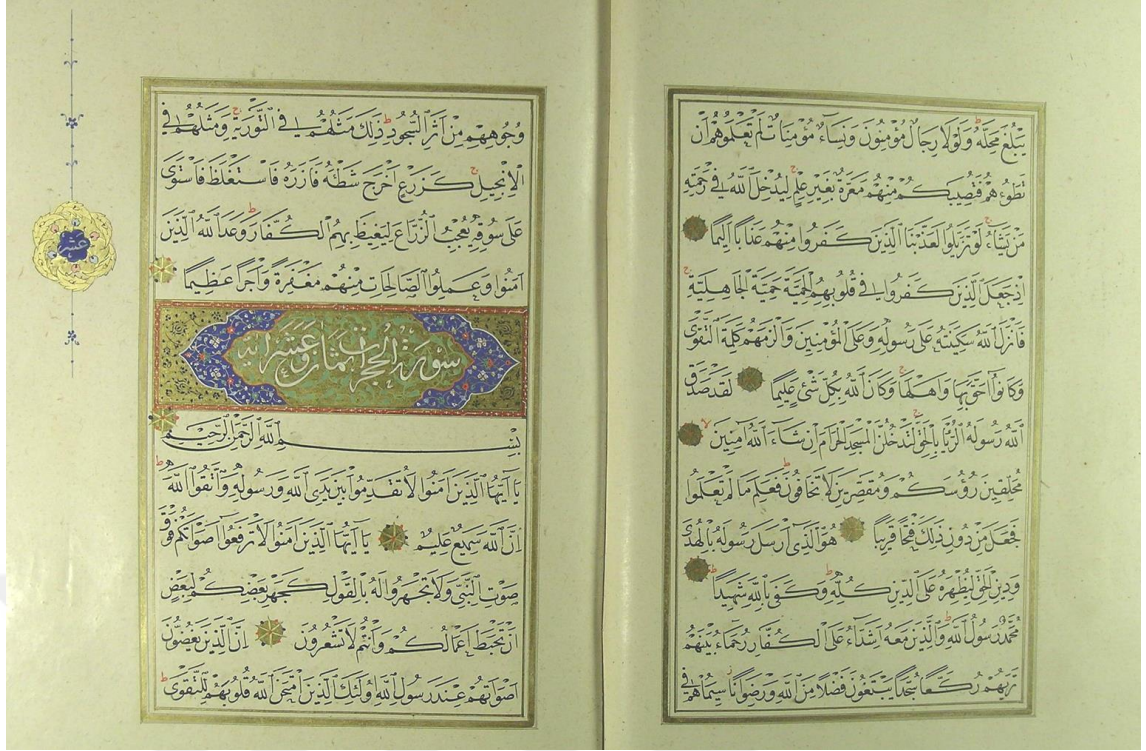 يَبْلُغَ مَحِلَّهُ وَلَوْلَا رِجَالٌ مُؤْمِنُونَ وَنِسَاءٌ مُؤْمِنَاتٌ لَمْ تَعْلَمُوهُمْ اَنْ
تَطَؤُهُمْ فَتُصِيبَكُمْ مِنْهُمْ مَعَرَّةٌ بِغَيْرِ عِلْمٍ لِيُدْخِلَ اللّٰهُ فِي رَحْمَتِهِ
مَنْ يَشَاءُ لَوْ تَزَيَّلُوا لَعَذَّبْنَا الَّذِينَ كَفَرُوا مِنْهُمْ عَذَابًا اَلِيمًا
اِذْ جَعَلَ الَّذِينَ كَفَرُوا فِي قُلُوبِهِمُ الْحَمِيَّةَ حَمِيَّةَ الْجَاهِلِيَّةِ
فَاَنْزَلَ اللّٰهُ سَكِينَتَهُ عَلٰى رَسُولِهِ وَعَلَى الْمُؤْمِنِينَ وَاَلْزَمَهُمْ كَلِمَةَ التَّقْوٰى
وَكَانُوا اَحَقَّ بِهَا وَاَهْلَهَا وَكَانَ اللّٰهُ بِكُلِّ شَيْءٍ عَلِيمًا لَقَدْ صَدَقَ
اللّٰهُ رَسُولَهُ الرُّءْيَا بِالْحَقِّ لَتَدْخُلُنَّ الْمَسْجِدَ الْحَرَامَ اِنْ شَاءَ اللّٰهُ اٰمِنِينَ
مُحَلِّقِينَ رُؤُسَكُمْ وَمُقَصِّرِينَ لَا تَخَافُونَ فَعَلِمَ مَا لَمْ تَعْلَمُوا
فَجَعَلَ مِنْ دُونِ ذٰلِكَ فَتْحًا قَرِيبًا هُوَ الَّذِي اَرْسَلَ رَسُولَهُ بِالْهُدٰى
وَدِينِ الْحَقِّ لِيُظْهِرَهُ عَلَى الدِّينِ كُلِّهِ وَكَفٰى بِاللّٰهِ شَهِيدًا
مُحَمَّدٌ رَسُولُ اللّٰهِ وَالَّذِينَ مَعَهُ اَشِدَّاءُ عَلَى الْكُفَّارِ رُحَمَاءُ بَيْنَهُمْ
تَرٰيهُمْ رُكَّعًا سُجَّدًا يَبْتَغُونَ فَضْلًا مِنَ اللّٰهِ وَرِضْوَانًا سِيمَاهُمْ فِي
وُجُوهِهِمْ مِنْ اَثَرِ السُّجُودِ ذٰلِكَ مَثَلُهُمْ فِي التَّوْرٰيةِ وَمَثَلُهُمْ فِي
الْاِنْجِيلِ كَزَرْعٍ اَخْرَجَ شَطْئَهُ فَاٰزَرَهُ فَاسْتَغْلَظَ فَاسْتَوٰى
عَلٰى سُوقِهِ يُعْجِبُ الزُّرَّاعَ لِيَغِيظَ بِهِمُ الْكُفَّارَ وَعَدَ اللّٰهُ الَّذِينَ
اٰمَنُوا وَعَمِلُوا الصَّالِحَاتِ مِنْهُمْ مَغْفِرَةً وَاَجْرًا عَظِيمًا
عشر
سورة الحجرات ثمان وعشر اية
بِسْمِ اللّٰهِ الرَّحْمٰنِ الرَّحِيمِ
يَا اَيُّهَا الَّذِينَ اٰمَنُوا لَا تُقَدِّمُوا بَيْنَ يَدَيِ اللّٰهِ وَرَسُولِهِ وَاتَّقُوا اللّٰهَ
اِنَّ اللّٰهَ سَمِيعٌ عَلِيمٌ يَا اَيُّهَا الَّذِينَ اٰمَنُوا لَا تَرْفَعُوا اَصْوَاتَكُمْ فَوْقَ
صَوْتِ النَّبِيِّ وَلَا تَجْهَرُوا لَهُ بِالْقَوْلِ كَجَهْرِ بَعْضِكُمْ لِبَعْضٍ
اَنْ تَحْبَطَ اَعْمَالُكُمْ وَاَنْتُمْ لَا تَشْعُرُونَ اِنَّ الَّذِينَ يَغُضُّونَ
اَصْوَاتَهُمْ عِنْدَ رَسُولِ اللّٰهِ اُولٰئِكَ الَّذِينَ امْتَحَنَ اللّٰهُ قُلُوبَهُمْ لِلتَّقْوٰى